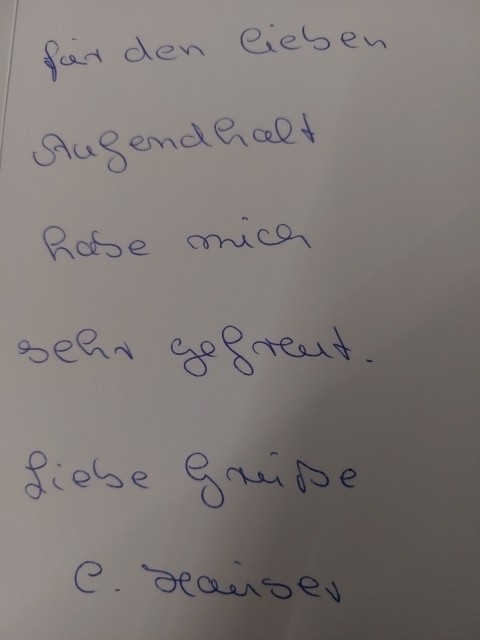 für den lieben
Augendhalt
habe mich
sehr gefreut.
Liebe Grüße
C. Hauser